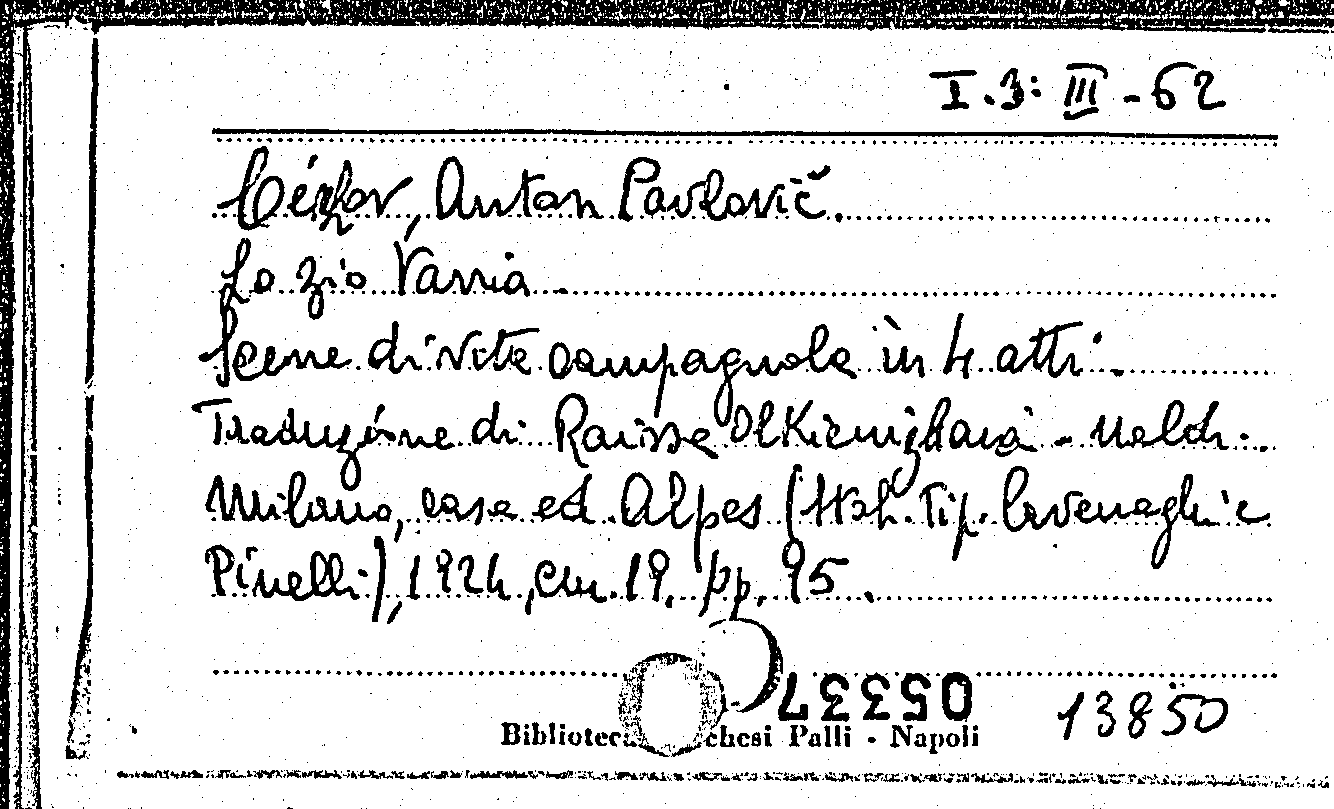 I.3: III - 62
Céchov, Anton Pavlovič.
Lo zio Vania.
Scene di vita campagnola in 4 atti.
Traduzione di Raissa Olkienizkaia - Naldi.
Milano, casa ed. Alpes (Stab. Tip. Cavenaghi e
Pinelli), 1924, cm. 19. pp. 95.
05337
13850
chesi Palli - Napoli